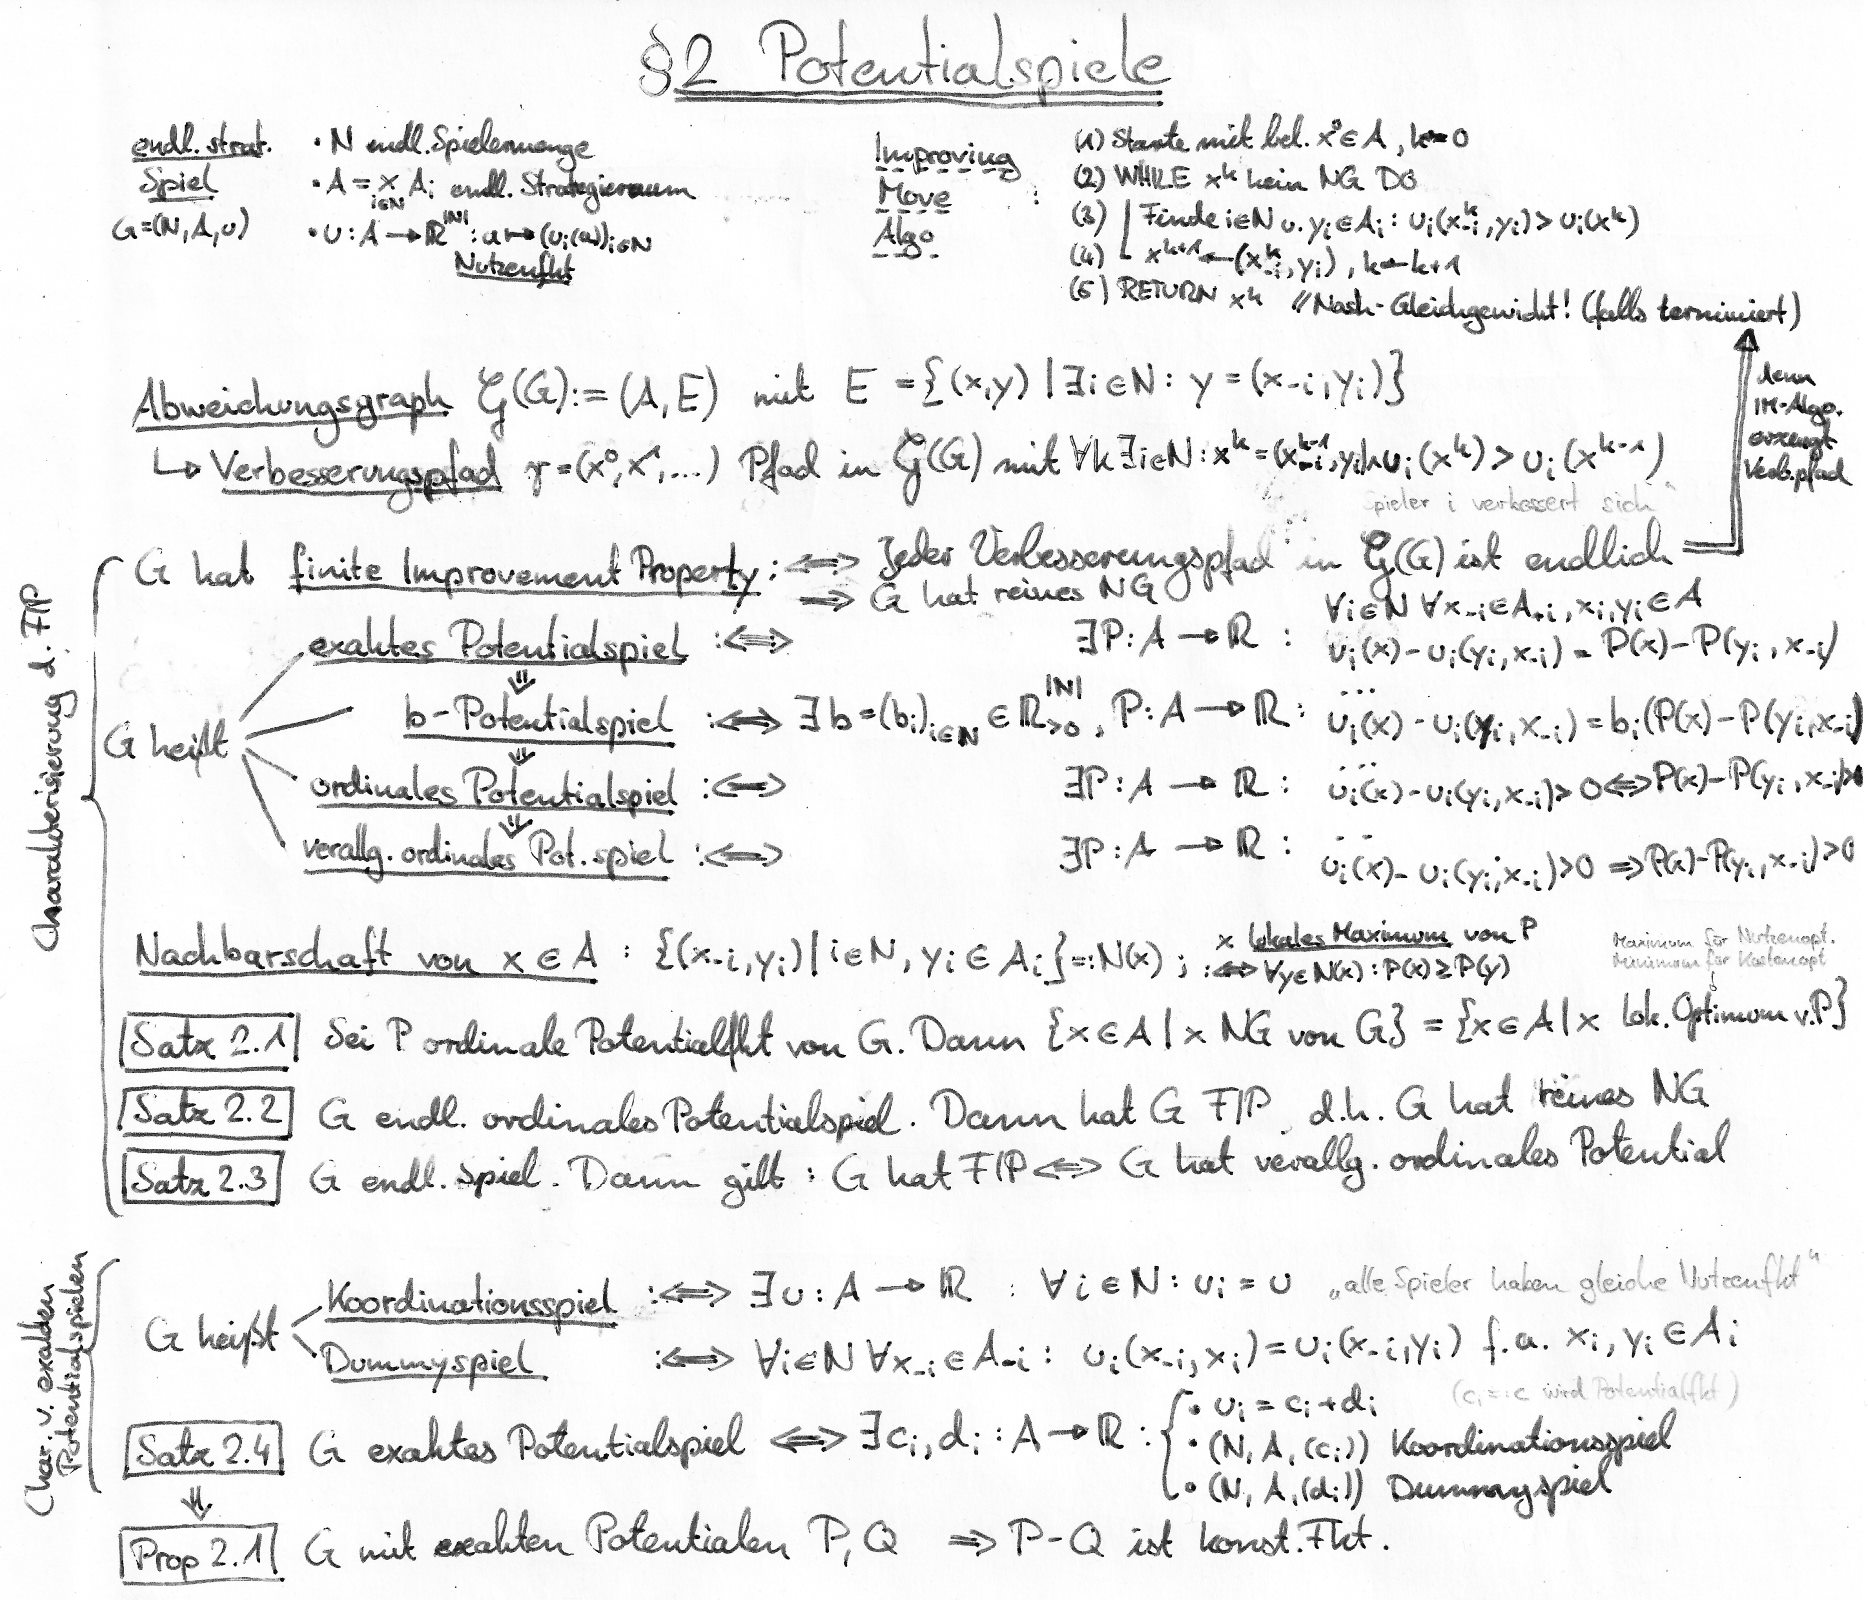 §2 Potentialspiele
endl. strat. Spiel G=(N,A,u)
• N endl. Spielermenge
• A = ⨉_{i∈N} A_i endl. Strategieraum
• u : A → ℝ^{|N|} : a ↦ (u_i(a))_{i∈N}
Nutzenfkt
Improving Move Algo :
(1) Starte mit bel. x⁰∈A, k=0
(2) WHILE x^k kein NG DO
(3) Finde i∈N u. y_i∈A_i : u_i(x_{-i}^k, y_i) > u_i(x^k)
(4) x^{k+1} ← (x_{-i}^k, y_i), k←k+1
(5) RETURN x^k // Nash-Gleichgewicht! (falls terminiert)
denn
IM-Algo.
erzeugt
Verb.pfad
Abweichungsgraph 𝒢(G) := (A,E) mit E = {(x,y) | ∃i∈N : y = (x_{-i}, y_i)}
↳ Verbesserungspfad γ=(x⁰,x¹,...) Pfad in 𝒢(G) mit ∀k∃i∈N : x^k = (x_{-i}^{k-1}, y_i) ∧ u_i(x^k) > u_i(x^{k-1})
Spieler i verbessert sich"
Charakterisierung d. FIP
G hat finite Improvement Property :⟺ Jeder Verbesserungspfad in 𝒢(G) ist endlich
⟹ G hat reines NG
∀i∈N ∀x_{-i}∈A_{-i}, x_i,y_i∈A
G heißt
exaktes Potentialspiel :⟺ ∃P : A → ℝ : u_i(x) - u_i(y_i, x_{-i}) = P(x) - P(y_i, x_{-i})
⇓ ...
b-Potentialspiel :⟺ ∃b=(b_i)_{i∈N} ∈ ℝ_{>0}^{|N|}, P : A → ℝ : u_i(x) - u_i(y_i, x_{-i}) = b_i(P(x) - P(y_i, x_{-i})
⇓ ...
ordinales Potentialspiel :⟺ ∃P : A → ℝ : u_i(x) - u_i(y_i, x_{-i}) > 0 ⟺ P(x) - P(y_i, x_{-i}) > 0
⇓ ...
verallg. ordinales Pot.spiel :⟺ ∃P : A → ℝ : u_i(x) - u_i(y_i, x_{-i}) > 0 ⟹ P(x) - P(y_i, x_{-i}) > 0
Nachbarschaft von x∈A : {(x_{-i}, y_i) | i∈N, y_i∈A_i} =: N(x) ; x lokales Maximum von P
:⟺ ∀y∈N(x) : P(x) ≥ P(y)
Maximum für Nutzenopt.
Minimum für Kostenopt
Satz 2.1 Sei P ordinale Potentialfkt von G. Dann {x∈A | x NG von G} = {x∈A | x lok. Optimum v. P}
Satz 2.2 G endl. ordinales Potentialspiel. Dann hat G FIP d.h. G hat reines NG
Satz 2.3 G endl. Spiel. Dann gilt : G hat FIP ⟺ G hat verallg. ordinales Potential
Char. v. exakten
Potentialspielen
G heißt
Koordinationsspiel :⟺ ∃u : A → ℝ : ∀i∈N : u_i = u „alle Spieler haben gleiche Nutzenfkt"
Dummyspiel :⟺ ∀i∈N ∀x_{-i}∈A_{-i} : u_i(x_{-i}, x_i) = u_i(x_{-i}, y_i) f.a. x_i, y_i ∈ A_i
(c_i =: c wird Potentialfkt)
Satz 2.4 G exaktes Potentialspiel ⟺ ∃c_i, d_i : A → ℝ : { • u_i = c_i + d_i
• (N, A, (c_i)) Koordinationsspiel
• (N, A, (d_i)) Dummyspiel
⇓
Prop 2.1 G mit exakten Potentialen P, Q ⟹ P-Q ist konst. Fkt.